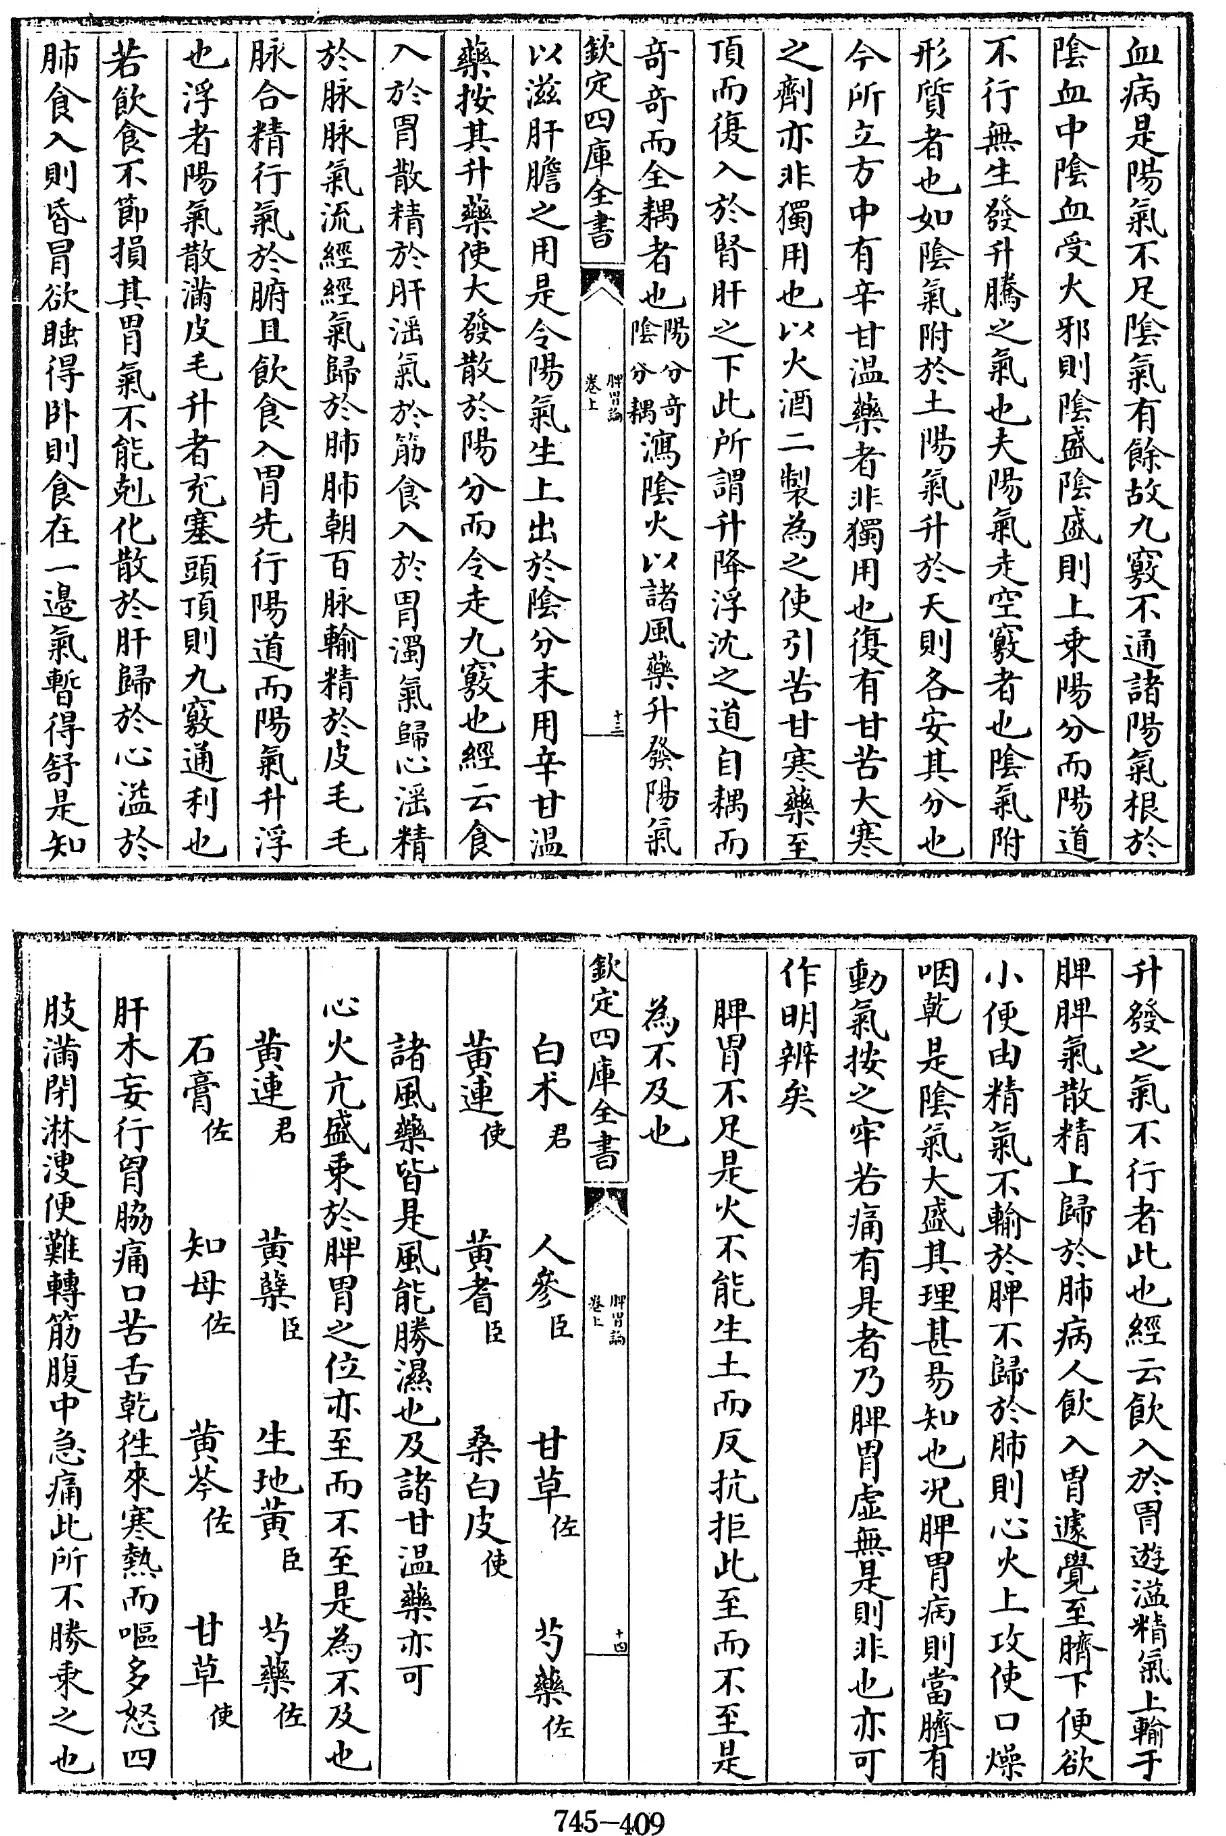 血病是陽氣不足陰氣有餘故九竅不通諸陽氣根於
陰血中陰血受火邪則陰盛陰盛則上乗陽分而陽道
不行無生發升騰之氣也夫陽氣走空竅者也陰氣附
形質者也如陰氣附於土陽氣升於天則各安其分也
今所立方中有辛甘温藥者非獨用也復有甘苦大寒
之劑亦非獨用也以火酒二製為之使引苦甘寒藥至
頂而復入於腎肝之下此所謂升降浮沈之道自耦而
竒竒而全耦者也陽分竒陰分耦瀉陰火以諸風藥升發陽氣
欽定四庫全書 脾胃論卷上 十三
以滋肝膽之用是令陽氣生上出於陰分末用辛甘温
藥按其升藥使大發散於陽分而令走九竅也經云食
入於胃散精於肝滛氣於筋食入於胃濁氣歸心滛精
於脉脉氣流經經氣歸於肺肺朝百脉輸精於皮毛毛
脉合精行氣於腑且飲食入胃先行陽道而陽氣升浮
也浮者陽氣散滿皮毛升者充塞頭頂則九竅通利也
若飲食不節損其胃氣不能尅化散於肝歸於心溢於
肺食入則昏冒欲睡得卧則食在一邊氣暫得舒是知
升發之氣不行者此也經云飲入於胃遊溢精氣上輸于
脾脾氣散精上歸於肺病人飲入胃遽覺至臍下便欲
小便由精氣不輸於脾不歸於肺則心火上攻使口燥
咽乾是陰氣大盛其理甚易知也况脾胃病則當臍有
動氣按之牢若痛有是者乃脾胃虚無是則非也亦可
作明辨矣
脾胃不足是火不能生土而反抗拒此至而不至是
為不及也
欽定四庫全書 脾胃論卷上 十四
白朮君 人參臣 甘草佐 芍藥佐
黄連使 黄耆臣 桑白皮使
諸風藥皆是風能勝濕也及諸甘温藥亦可
心火亢盛乗於脾胃之位亦至而不至是為不及也
黄連君 黄蘗臣 生地黄臣 芍藥佐
石膏佐 知母佐 黄芩佐 甘草使
肝木妄行胷脇痛口苦舌乾徃來寒熱而嘔多怒四
肢滿閉淋溲便難轉筋腹中急痛此所不勝乗之也
745-409